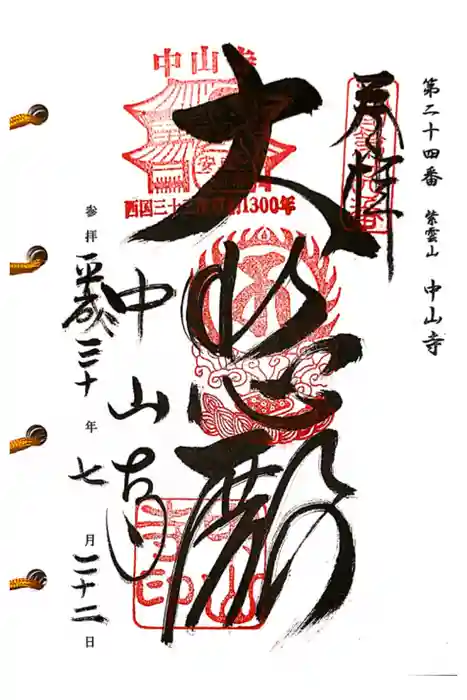 第二十四番 紫雲山 中山寺
奉拝
大悲殿
中山寺
西国三十三 1300年
中山寺
参拝 平成三十年七月二十二日